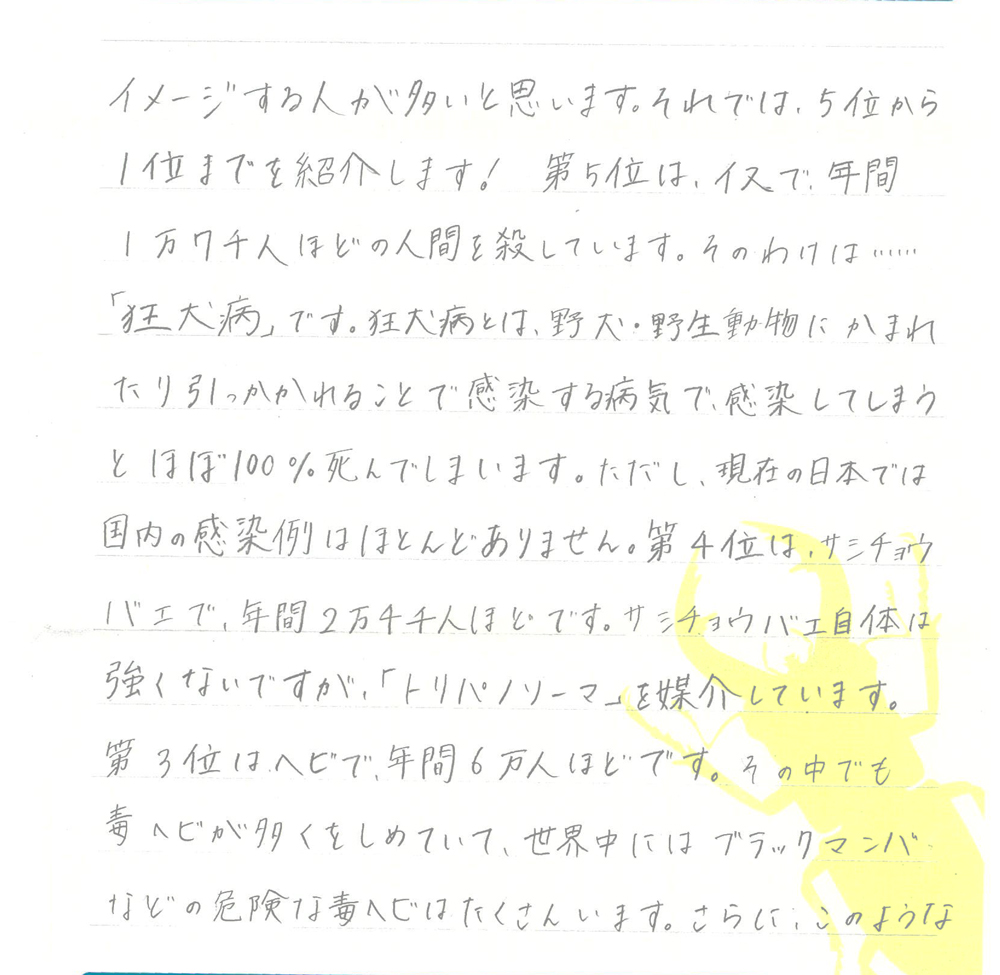 イメージする人が多いと思います。それでは、5位から
1位までを紹介します! 第5位は、イヌで、年間
1万7千人ほどの人間を殺しています。そのわけは……
「狂犬病」です。狂犬病とは、野犬・野生動物にかまれ
たり引っかかれることで感染する病気で、感染してしまう
とほぼ100%死んでしまいます。ただし、現在の日本では
国内の感染例はほとんどありません。第4位は、サシチョウ
バエで、年間2万4千人ほどです。サシチョウバエ自体は
強くないですが、「トリパノソーマ」を媒介しています。
第3位は、ヘビで、年間6万人ほどです。その中でも
毒ヘビが多くをしめていて、世界中にはブラックマンバ
などの危険な毒ヘビはたくさんいます。さらに、このような